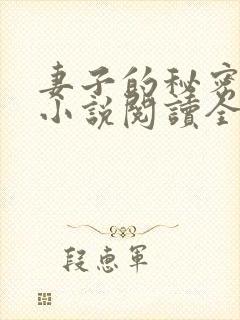 妻子的秘密
小说閱讀全
段惠军